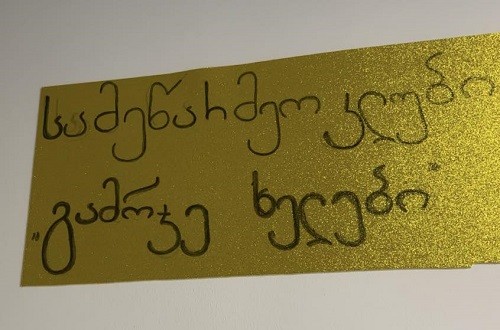 სამეწარმეო კლუბი
"გამრჯე ხელები"